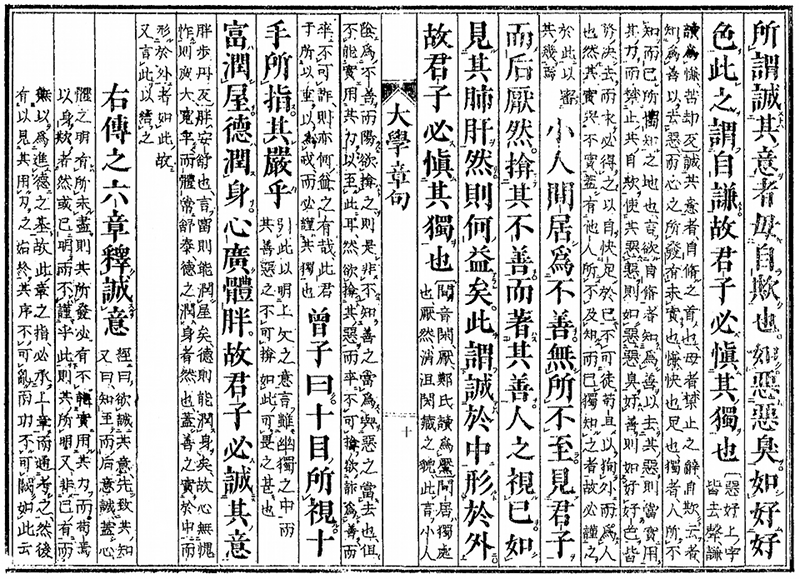 所謂誠其意者毋自欺也如惡惡臭如好好
色此之謂自謙故君子必愼其獨也
惡好上字
皆去聲謙
讀爲慊苦劫反誠其意者自修之首也毋者禁止之辭自欺云者
知爲善以去惡而心之所發有未實也慊快也足也獨者人所不
知而已所獨知之地也言欲自修者知爲善以去其惡則當實用
其力而禁止其自欺使其惡惡則如惡惡臭好善則如好好色皆
務決去而求必得之以自快足於已不可徒苟且以狥外而爲人
也然其實與不實蓋有他人所不及知而已獨知之者故必謹之
於此以審
其幾焉
小人閒居爲不善無所不至見君子
而后厭然揜其不善而著其善人之視已如
見其肺肝然則何益矣此謂誠於中形於外
故君子必愼其獨也
閒音閑厭鄭氏讀爲黶閒居獨處
也厭然消沮閉藏之貌此言小人
大學章句
十
陰爲不善而陽欲揜之則是非不知善之當爲與惡之當去也但
不能實用其力以至此耳然欲揜其惡而卒不可揜欲詐爲善而
卒不可詐則亦何益之有哉此君
子所以重以爲戒而必謹其獨也
曾子曰十目所視十
手所指其嚴乎
引此以明上文之意言雖幽獨之中而
其善惡之不可揜如此可畏之甚也
富潤屋德潤身心廣體胖故君子必誠其意
胖步丹反胖安舒也言富則能潤屋矣德則能潤身矣故心無愧
怍則廣大寬平而體常舒泰德之潤身者然也蓋善之實於中而
形於外者如此故
又言此以結之
右傳之六章釋誠意
經曰欲誠其意先致其知
又曰知至而后意誠蓋心
體之明有所未盡則其所發必有不能實用其力而苟焉
以自欺者然或已明而不謹乎此則其所明又非已有而
無以爲進德之基故此章之指必承上章而通考之然後
有以見其用力之始終其序不可亂而功不可闕如此云